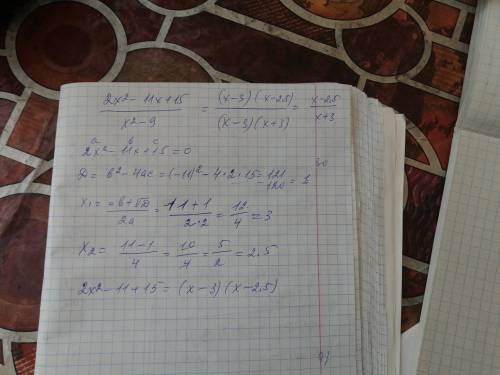 (2x²- 11x+15)/(x²-9) = ((x-3)(x-2,5))/((x-3)(x+3)) = (x-2,5)/(x+3)
a b c
2x²- 11x+15=0
D= b²-4ac=(-11)²-4·2·15=121-120= 1
x₁= (-b+√D)/2a = (11+1)/(2·2) = 12/4 = 3
x₂= (11-1)/4 = 10/4 = 5/2 = 2,5
2x²- 11+15= (x-3)(x-2,5)